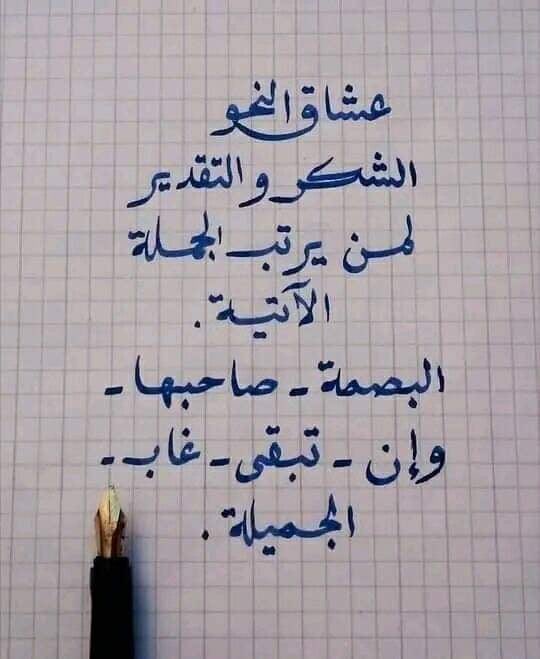 عشاق النحو
الشكر والتقدير
لمن يرتب الجملة
الآتية.
البصمة - صاحبها -
وإن - تبقى - غاب -
الجميلة.